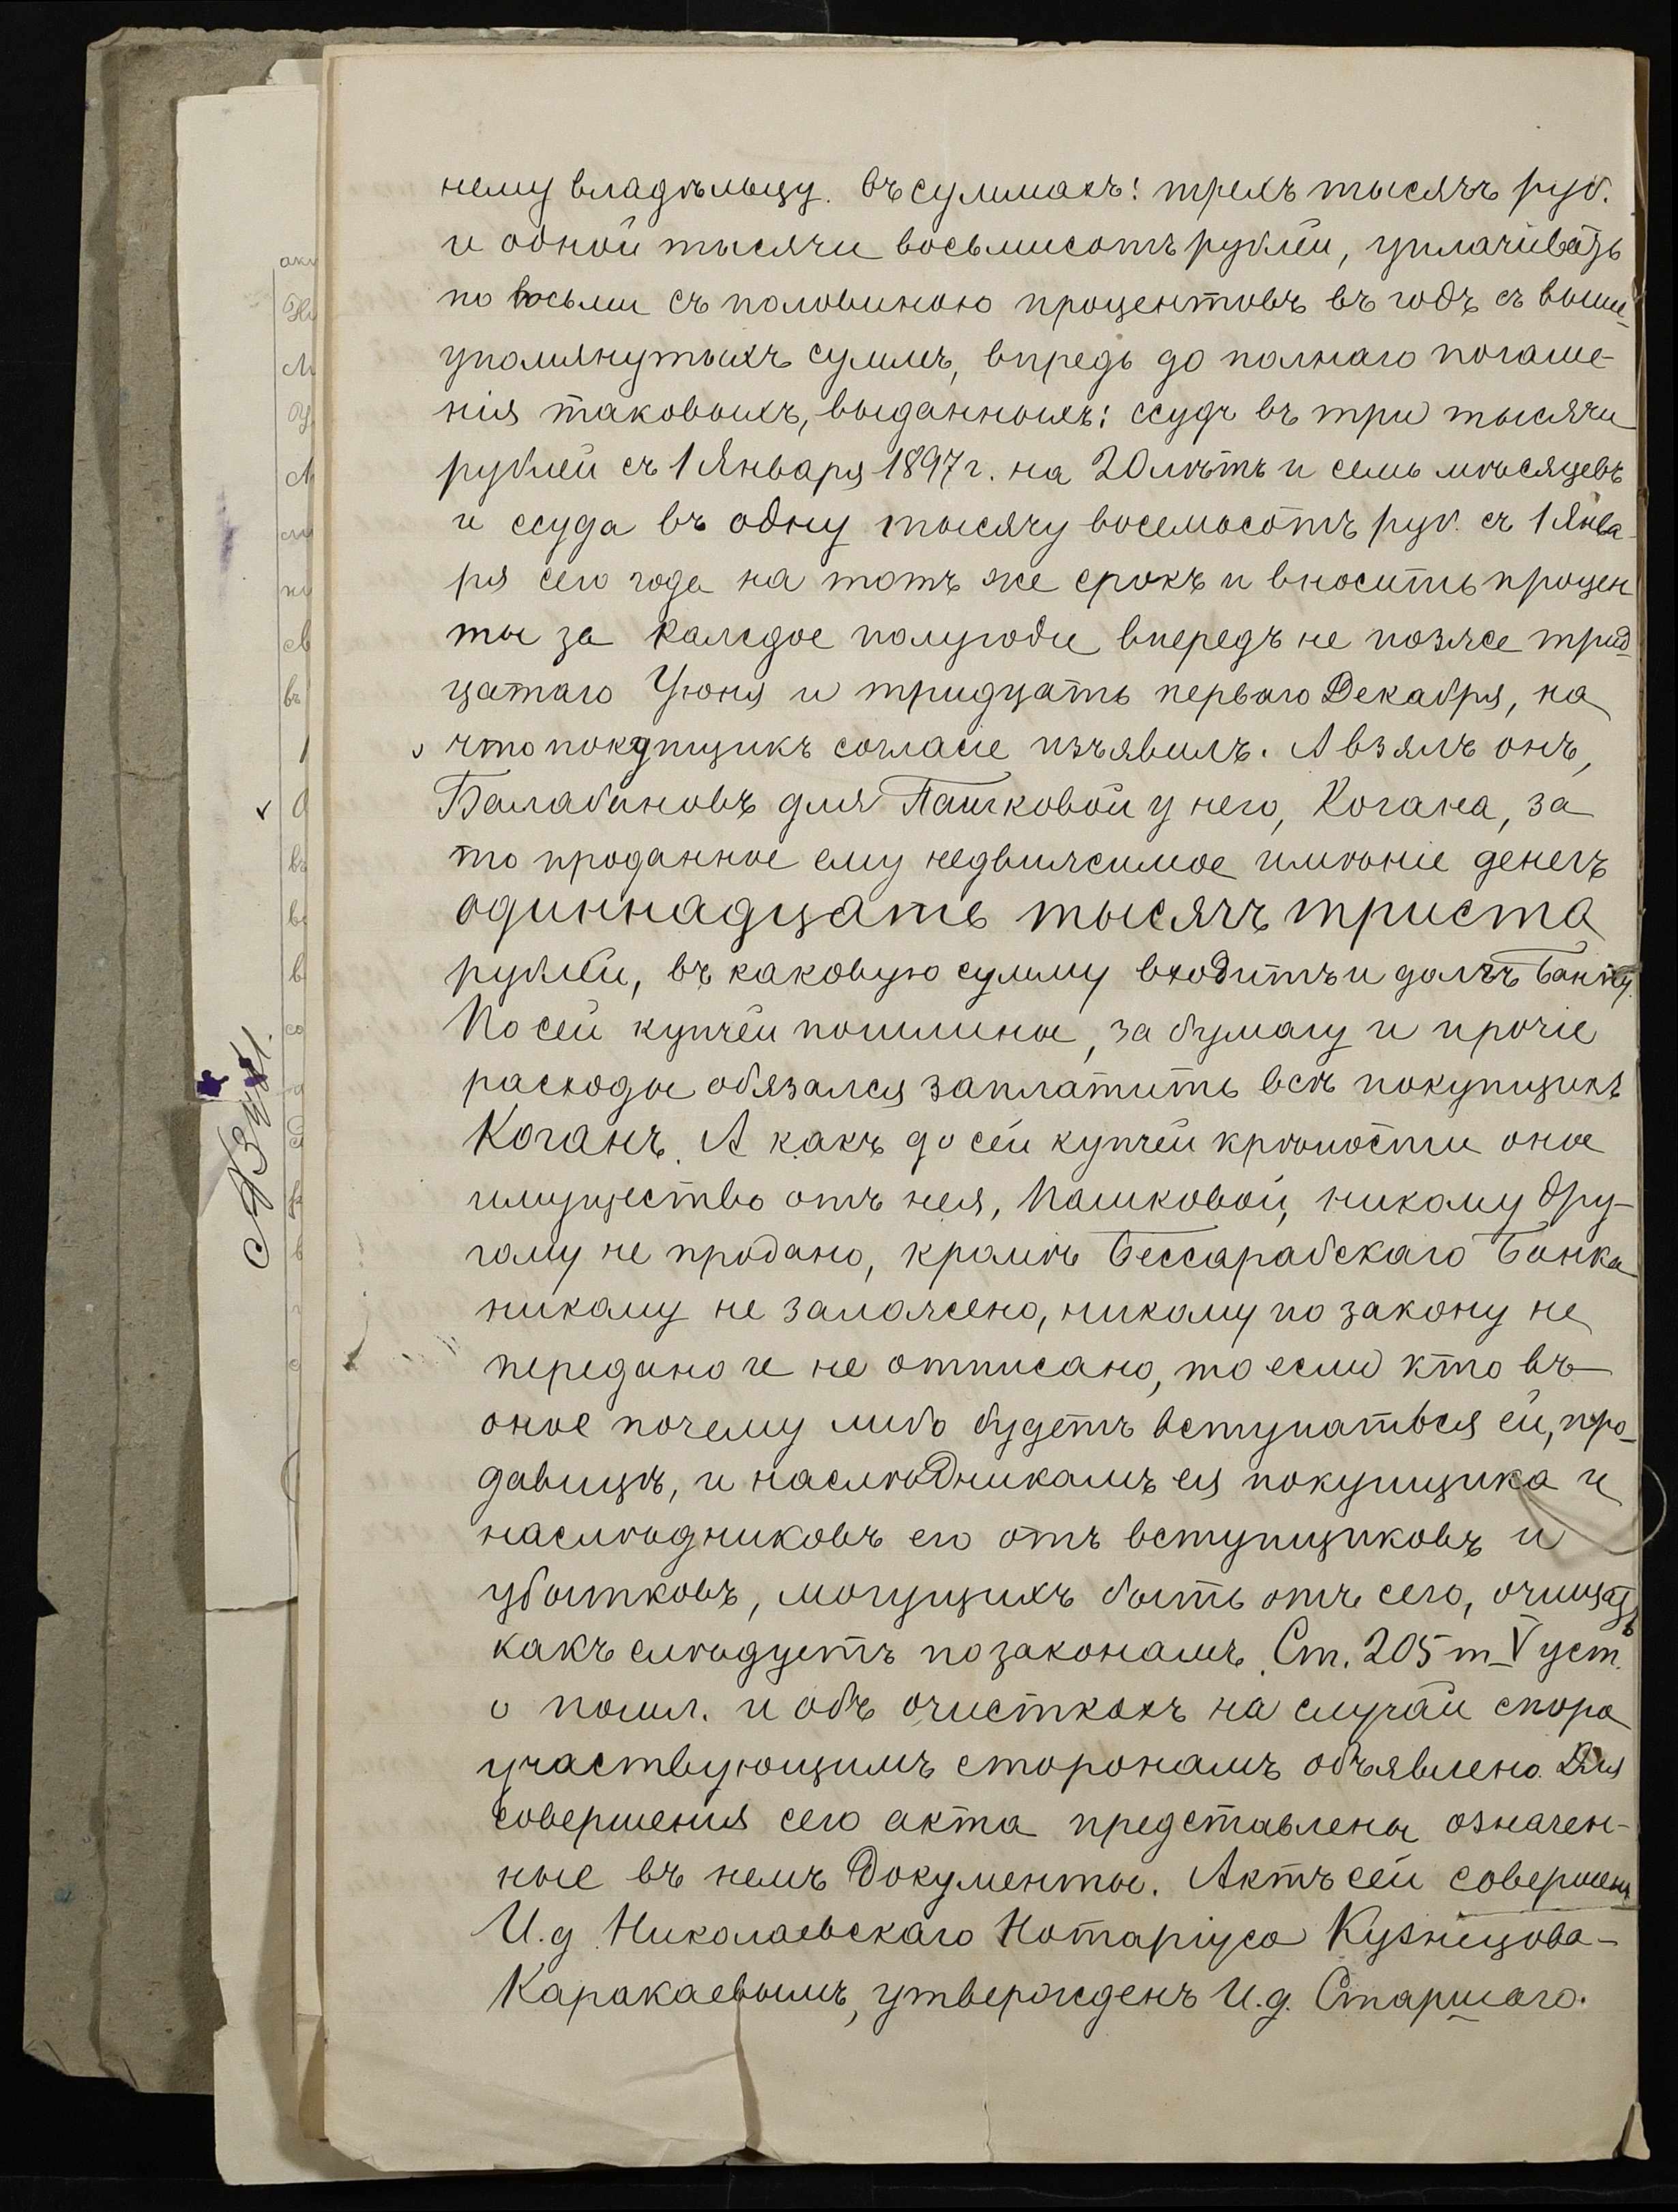 нему владѣльцу въ суммахъ: трехъ тысячъ руб.
и одной тысячи восьмисотъ рублей, уплачивать
по восьми съ половиною процентовъ въ годъ съ выше
упомянутыхъ суммъ, впредь до полнаго погаше-
нія таковыхъ, выданныхъ: ссуда въ три тысячи
рублей съ 1 Января 1897 г. на 20 лѣтъ и семь мѣсяцевъ
и ссуда въ одну тысячу восемьсотъ руб. съ 1 Янва-
ря сего года на тотъ же срокъ и вносить процен
ты за каждое полугодіе впередъ не позже трид-
цатаго Іюня и тридцать перваго Декабря, на
что покупщикъ согласіе изъявилъ. А взялъ онъ,
Балабановъ для Пашковой у него, Когана, за
то проданное ему недвижимое имѣніе денегъ
одиннадцать тысячъ триста
рублей, въ каковую сумму входитъ и долгъ Банку.
По сей купчей пошлины, за бумагу и прочіе
расходы обязался заплатить всѣ покупщикъ
Коганъ. А какъ до сей купчей крѣпости оное
имущество отъ нея, Пашковой, никому дру-
гому не продано, кромѣ Бессарабскаго Банка
никому не заложено, никому по закону не
передано и не отписано, то если кто въ
оное почему либо будетъ вступаться ей, про-
давицѣ, и наслѣдникамъ ея покупщика и
наслѣдниковъ его отъ вступщиковъ и
убытковъ, могущихъ быть отъ сего, очищать
какъ слѣдуетъ по законамъ. Ст. 205 т. V уст.
о пошл. и объ очисткахъ на случай спора
участвующимъ сторонамъ объявлено. Для
совершенія сего акта представлены означен-
ные въ немъ документы. Актъ сей совершенъ
И. д. Николаевскаго Нотаріуса Кузнецова-
Каракаевымъ, утвержденъ И. д. Старшаго.